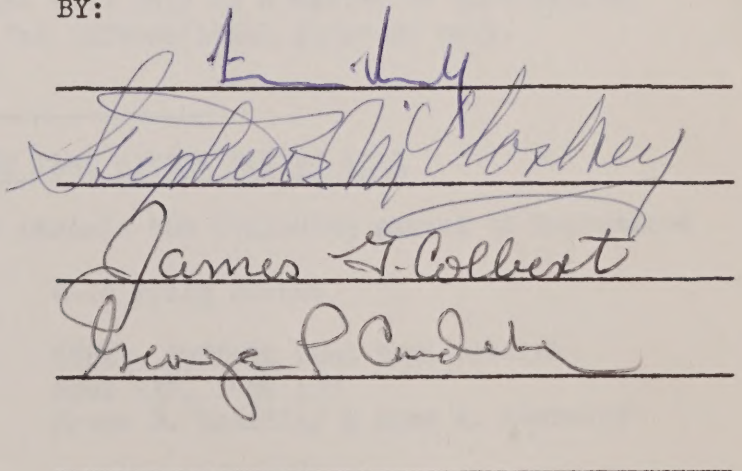 BY:
Stephen E. McCloskey
James G. Colbert
George P. Condakes